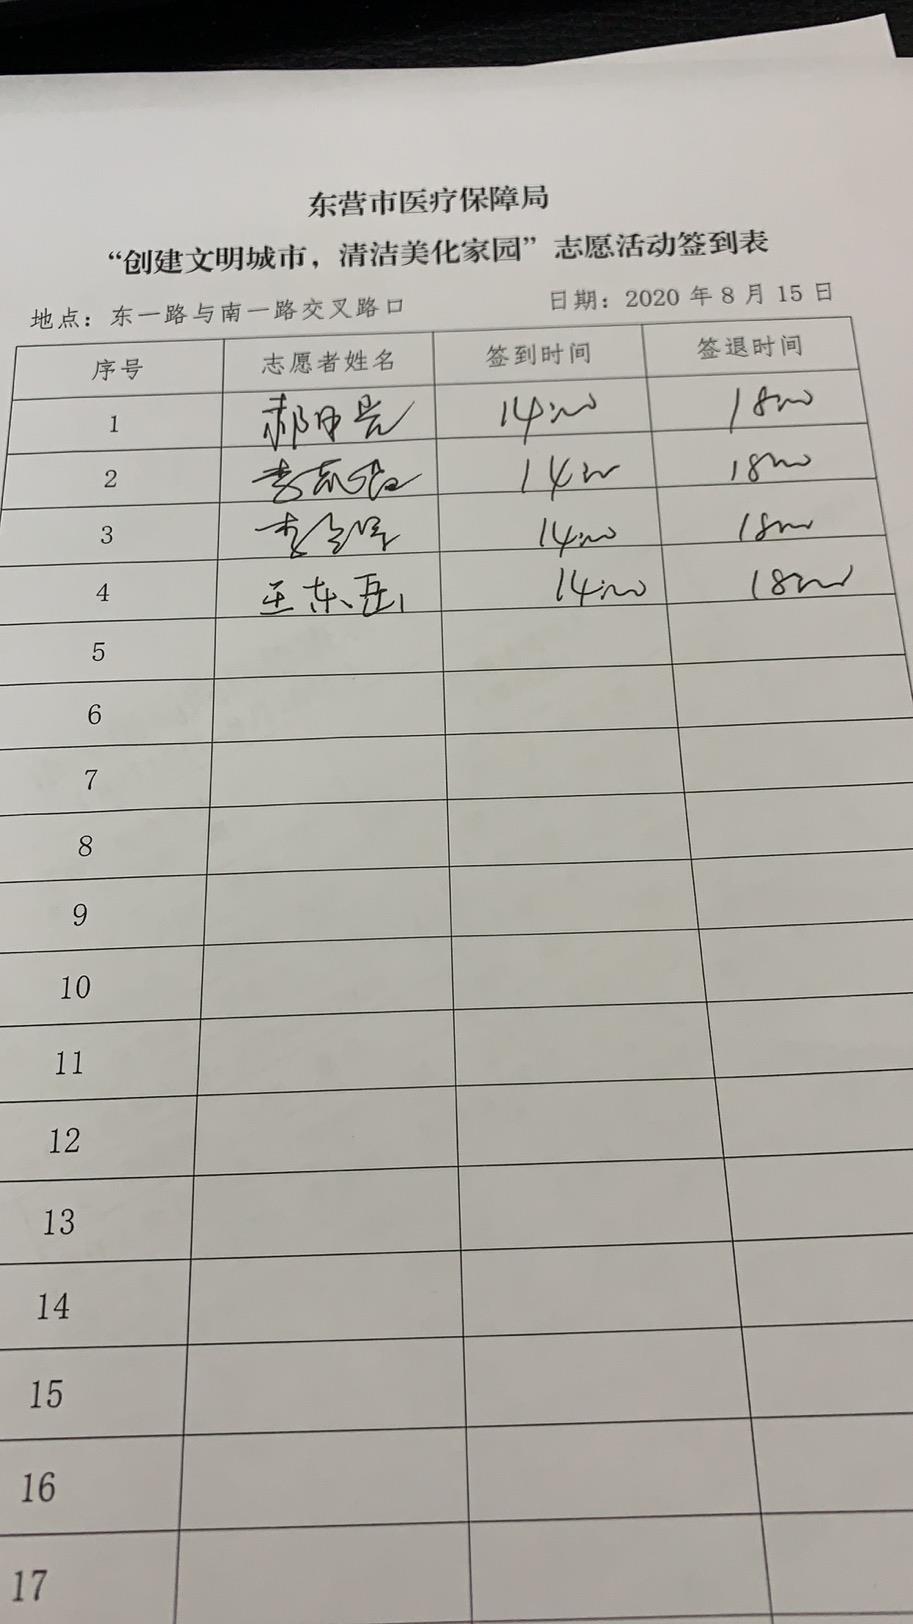 东营市医疗保障局
“创建文明城市，清洁美化家园”志愿活动签到表
地点：东一路与南一路交叉路口 日期：2020 年 8 月 15 日
序号 志愿者姓名 签到时间 签退时间
1 14:00 18:00
2 14:00 18:00
3 14:00 18:00
4 王东磊 14:00 18:00
5
6
7
8
9
10
11
12
13
14
15
16
17